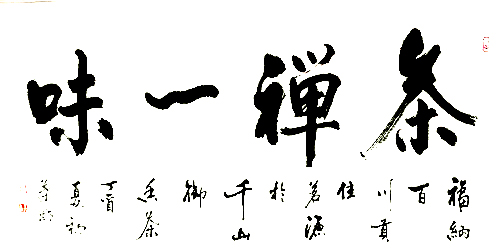 茶禅一味
福納
百
川貫
佳
茗源
於
千山
御
香茶
丁酉
夏初